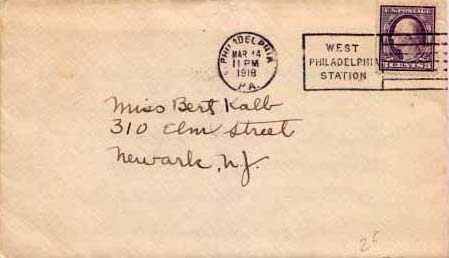 PHILADELPHIA
MAR 14
11 PM
1918
PA.
WEST
PHILADELPHIA
STATION
U.S. POSTAGE
CENTS
Miss Bert Kalb
310 Elm Street
Newark, N.J.
25